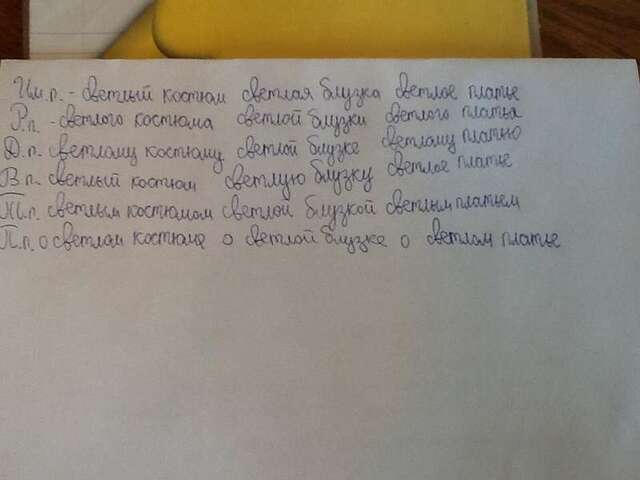 Им.п. - светлый костюм светлая блузка светлое платье
Р.п. - светлого костюма светлой блузки светлого платья
Д.п. светлому костюму светлой блузке светлому платью
В.п. светлый костюм светлую блузку светлое платье
Т.п. светлым костюмом светлой блузкой светлым платьем
П.п. о светлом костюме о светлой блузке о светлом платье